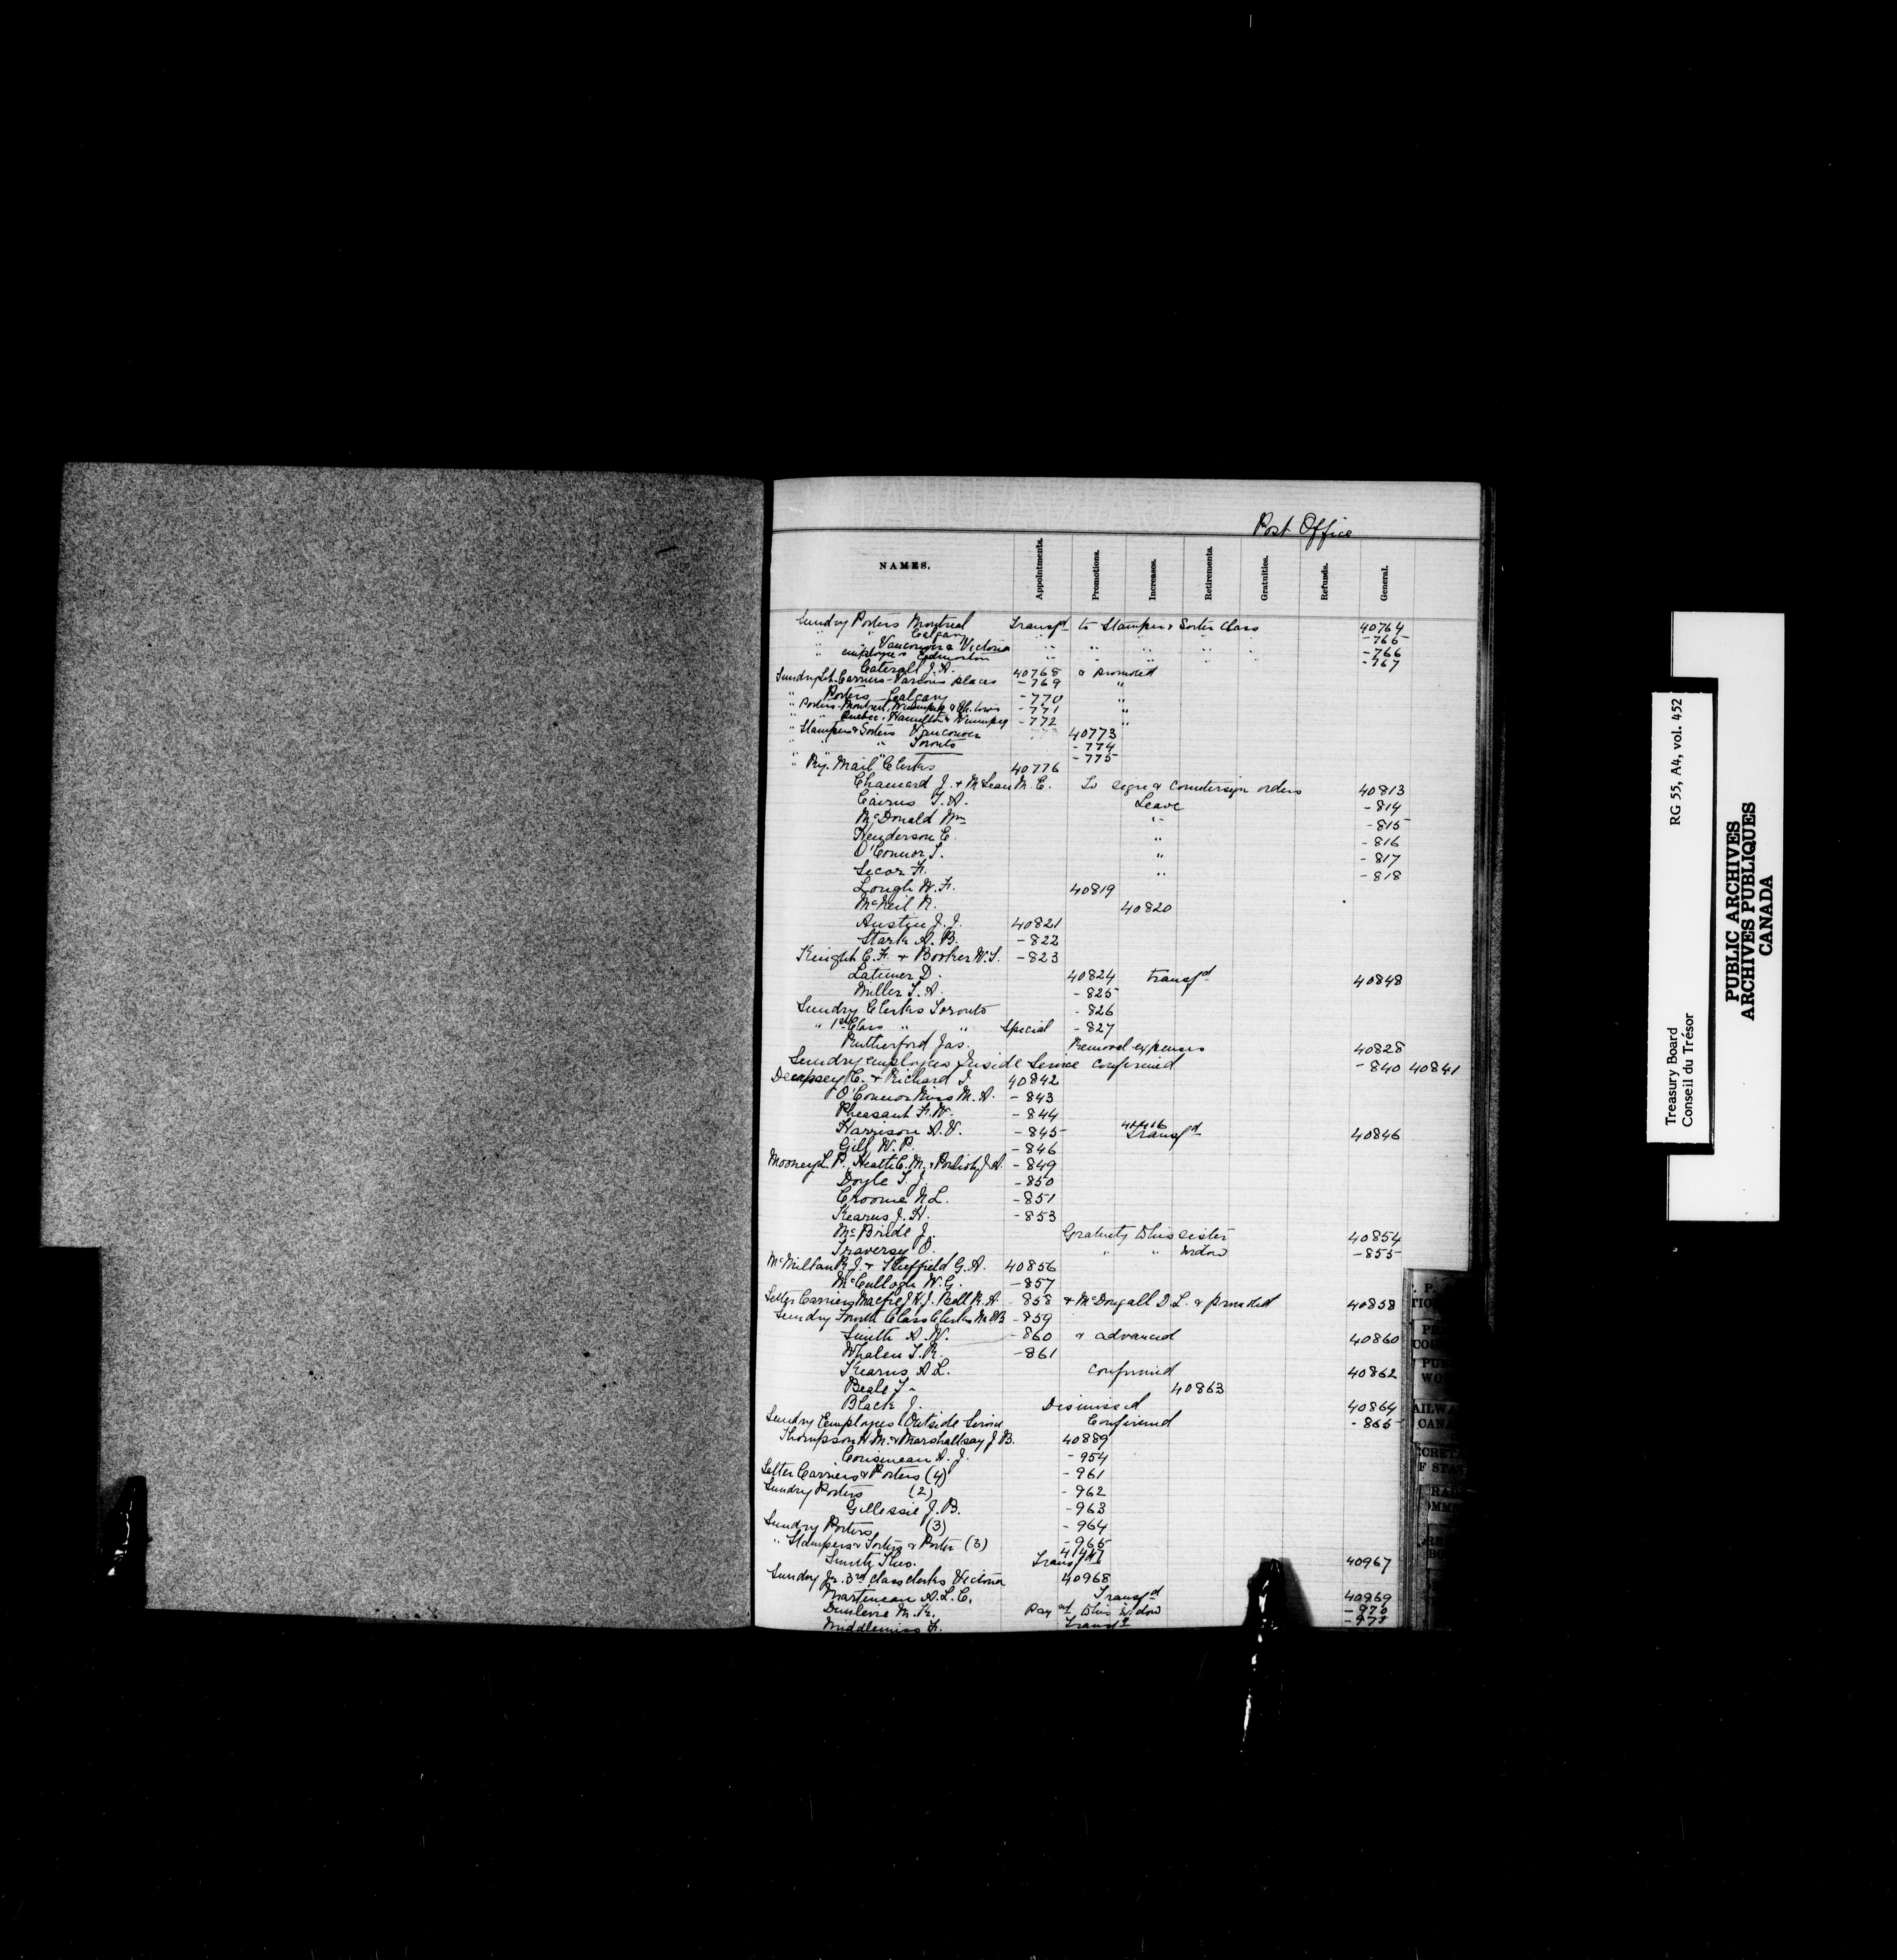 Post Office
NAMES. Appointments. Promotions. Increases. Retirements. Gratuities. Refunds. General.
Sundry Porters Montreal Transfd to Stamper & Sorter Class 40764
" " Calgary " " -765
" " Vancouver & Victoria " " " " " -766
" employees Edmonton " " " " " -767
Cateral J. A. 40768 & promoted
Sundry Let. Carriers - Various places -769 "
" Porters Calgary -770 "
" Porters - Montreal, Winnipeg & -771 "
" " Quebec, Hamilton & Winnipeg -772 "
" Stampers & Sorters Vancouver 40773
" " " Toronto -774
-775
" Ry. Mail Clerks 40776
Chamard J. & McLean M. C. To sign & countersign orders 40813
Cairns T. A. Leave -814
McDonald Wm " -815
Henderson C. " -816
O'Connor T. " -817
Secor F. " -818
Lough W. F. 40819
McNeil N. 40820
Austin J. J. 40821
Stark A. B. -822
Knight C. F. & Booker W. S. -823
Latimer D. 40824 Transfd 40848
Miller T. A. -825
Sundry Clerks Toronto -826
" 1st Class " " Special -827
Rutherford Jas. Removal expenses 40828
Sundry employees Inside Service confirmed -840 40841
Dempsey C. & Richard J. 40842
O'Connor Miss M. A. -843
Pheasant F. W. -844
Harrison A. V. -845 Transfd 40846
Gilf W. P. -846
Mooney L. P., Heath C. M. & J. A. -849
Doyle T. J. -850
Croome N. L. -851
Kearns J. H. -853
McBride J. Gratuity to his sister 40854
Traversy O. " " widow -855
McMillan R. J. & Sheffield G. A. 40856
McCullogh W. G. -857
Letter Carriers Macfie J. H. J. Bell R. A. 858 & McDougall D. L. & promoted 40858
Sundry Fourth Class Clerks -859
Smith A. W. -860 & advanced 40860
Whalen T. R. -861
Kearns A. L. Confirmed 40862
Beale T. 40863
Black J. Dismissed 40864
Sundry Employees Outside Service Confirmed -865
Thompson H. M. & Marshallsay J. B. 40889
Cousineau A. J. -954
Letter Carriers & Porters (4) -961
Sundry Porters (2) -962
Gillessie J. B. -963
Sundry Porters (3) -964
" Stampers & Sorters & Porter (3) -965
Smith Thos. Transfd 40967
Sundry Jr. 3rd class clerks Victoria 40968
Martineau A. L. C. Transfd 40969
Dunlevie M. K. Payt to his widow -970
Middlemiss F. Transfd -971
Treasury Board RG 55, A4, vol. 452
Conseil du Trésor
PUBLIC ARCHIVES
ARCHIVES PUBLIQUES
CANADA